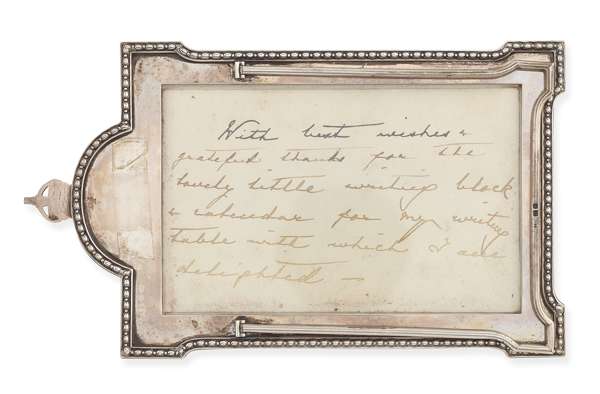 With best wishes &
grateful thanks for the
lovely little writing block
& calendar for my writing
table with which I am
delighted —